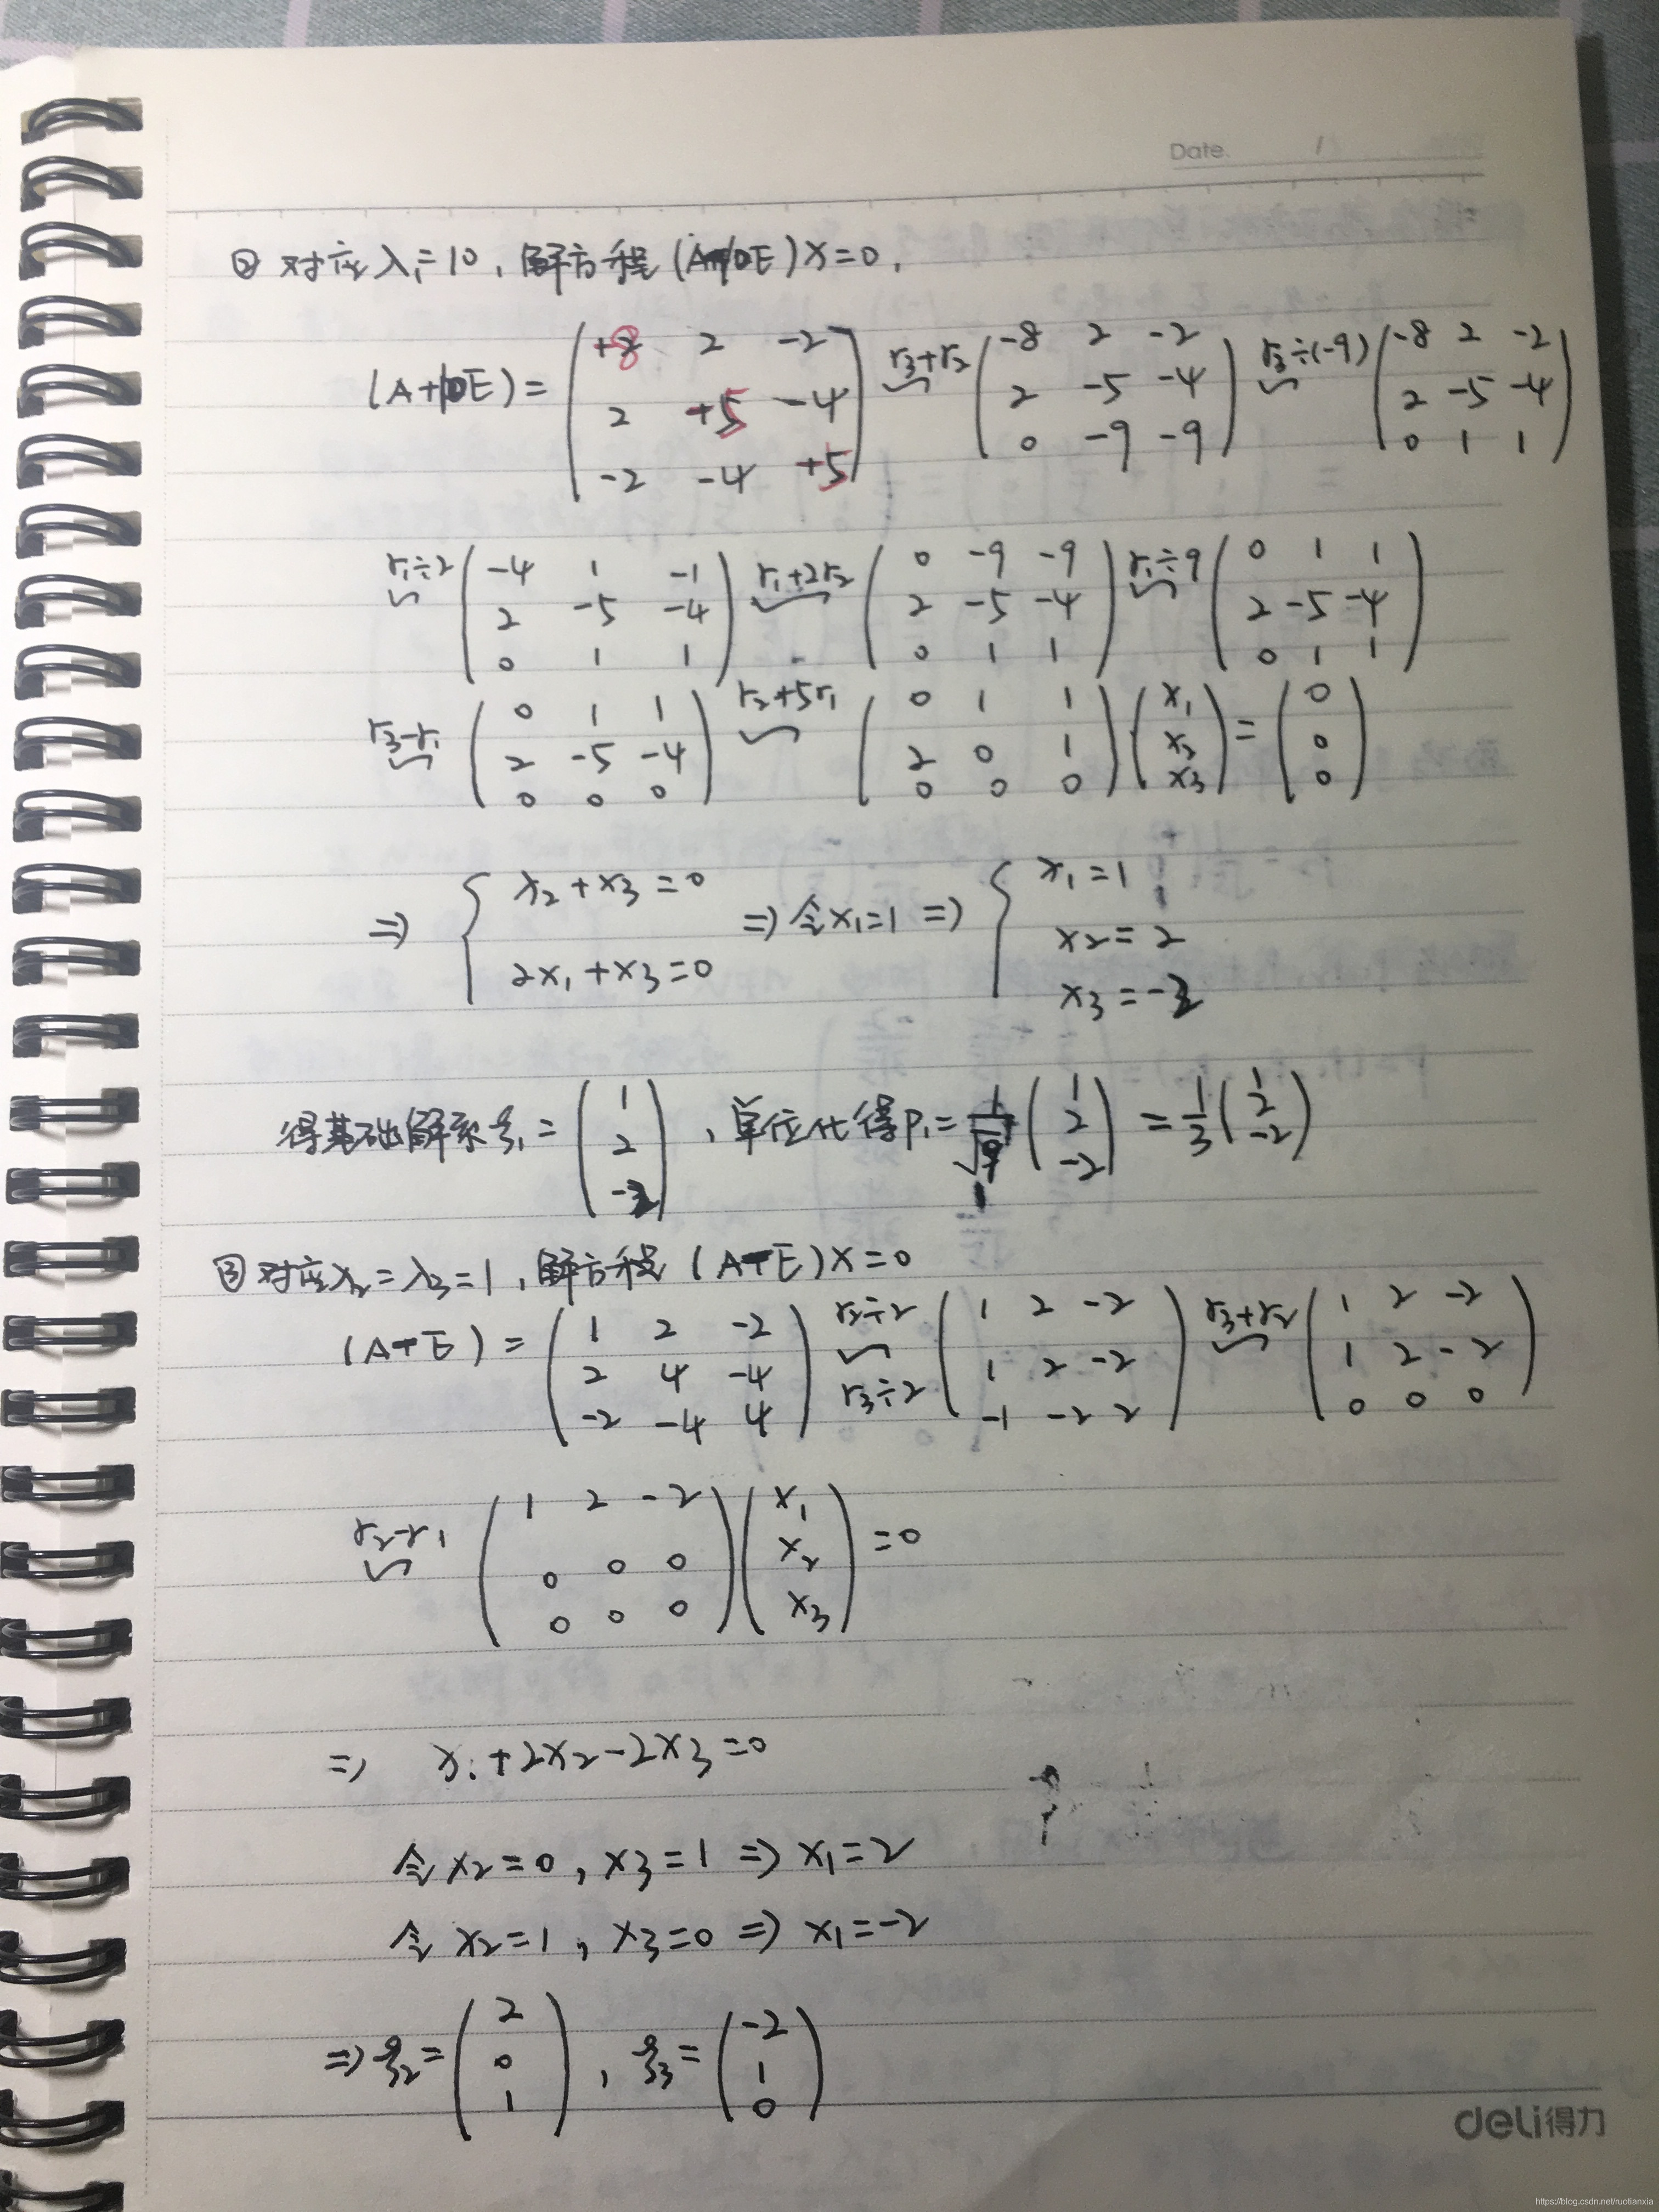 Date.
② 对应λ₁=10, 解方程 (A-10E)X=0,
(A-10E) = ( -8 2 -2 ; 2 -5 -4 ; -2 -4 -5 ) r₃+r₂ ~ ( -8 2 -2 ; 2 -5 -4 ; 0 -9 -9 ) r₃÷(-9) ~ ( -8 2 -2 ; 2 -5 -4 ; 0 1 1 )
r₁÷2 ~ ( -4 1 -1 ; 2 -5 -4 ; 0 1 1 ) r₁+2r₂ ~ ( 0 -9 -9 ; 2 -5 -4 ; 0 1 1 ) r₁÷9 ~ ( 0 1 1 ; 2 -5 -4 ; 0 1 1 )
r₃-r₁ ~ ( 0 1 1 ; 2 -5 -4 ; 0 0 0 ) r₂+5r₁ ~ ( 0 1 1 ; 2 0 1 ; 0 0 0 ) ( x₁ ; x₂ ; x₃ ) = ( 0 ; 0 ; 0 )
⇒ { x₂+x₃=0 ; 2x₁+x₃=0 ⇒ 令x₁=1 ⇒ { x₁=1 ; x₂=2 ; x₃=-2
得基础解系ξ₁= ( 1 ; 2 ; -2 ) , 单位化得p₁= 1/√9 ( 1 ; 2 ; -2 ) = 1/3 ( 1 ; 2 ; -2 )
③ 对应λ₂=λ₃=1, 解方程 (A-E)X=0
(A-E) = ( 1 2 -2 ; 2 4 -4 ; -2 -4 4 ) r₂÷2 ~ r₃÷2 ( 1 2 -2 ; 1 2 -2 ; -1 -2 2 ) r₃+r₂ ~ ( 1 2 -2 ; 1 2 -2 ; 0 0 0 )
r₂-r₁ ~ ( 1 2 -2 ; 0 0 0 ; 0 0 0 ) ( x₁ ; x₂ ; x₃ ) =0
⇒ x₁+2x₂-2x₃=0
令x₂=0, x₃=1 ⇒ x₁=2
令x₂=1, x₃=0 ⇒ x₁=-2
⇒ ξ₂= ( 2 ; 0 ; 1 ) , ξ₃= ( -2 ; 1 ; 0 )
deli得力
https://blog.csdn.net/ruotianxia